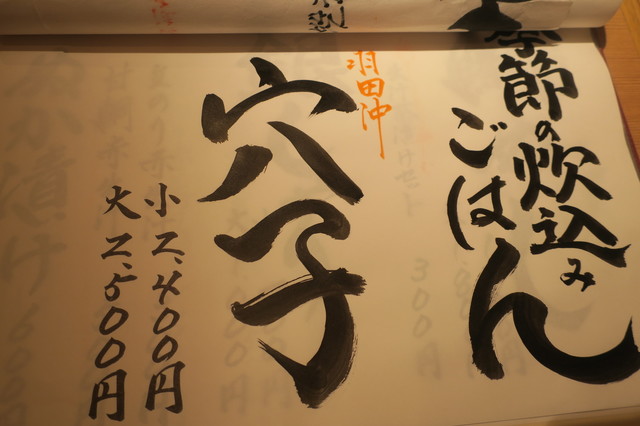 季節の炊込み
ごはん
羽田沖
穴子
小 2、400円
大 2、500円